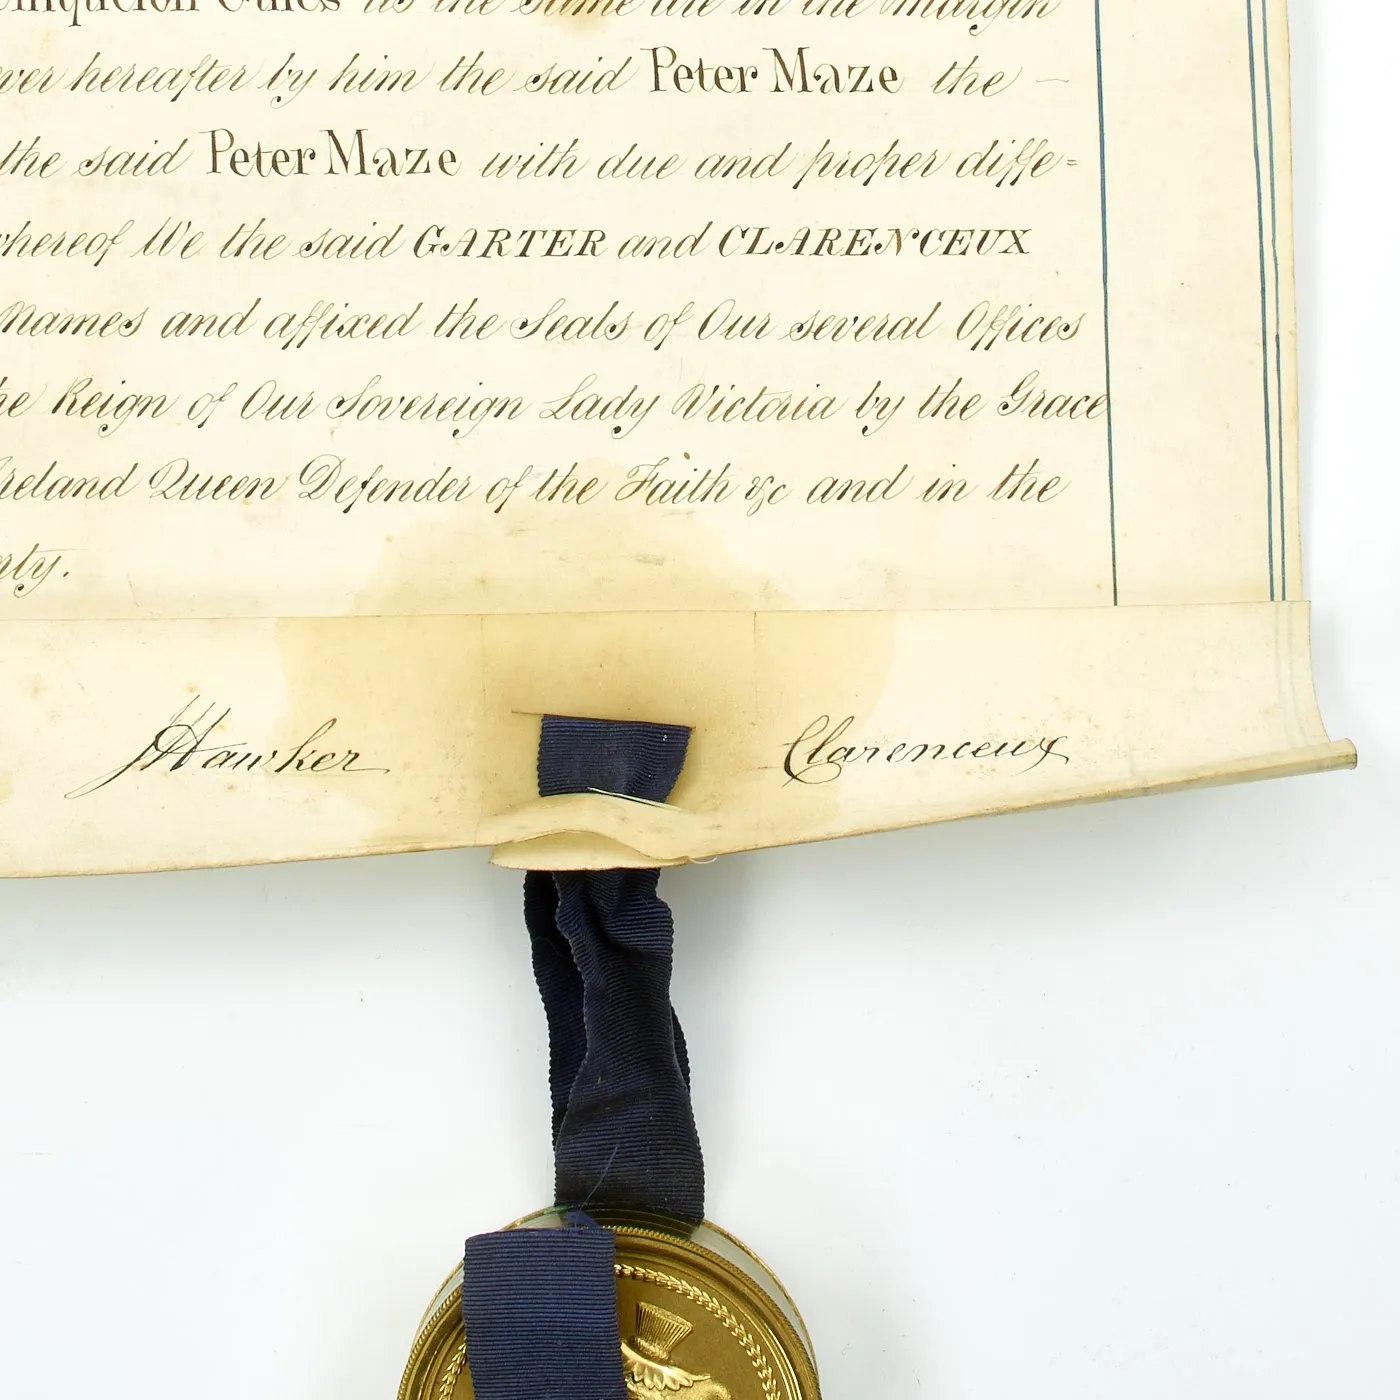 Gules as the same are in the margin
ver hereafter by him the said Peter Maze the —
the said Peter Maze with due and proper diffe=
whereof We the said GARTER and CLARENCEUX
Names and affixed the Seals of Our several Offices
he Reign of Our Sovereign Lady Victoria by the Grace
Ireland Queen Defender of the Faith &c and in the
rty.
JHawker Clarenceux